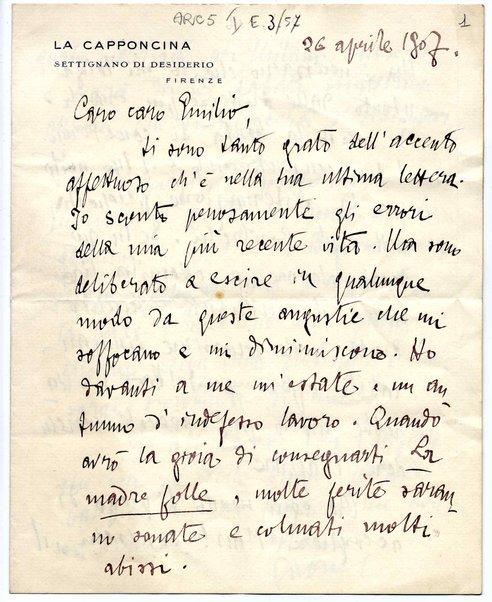 ARC5 I E. 3/57
1
LA CAPPONCINA
SETTIGNANO DI DESIDERIO
FIRENZE
26 aprile 1907.
Caro caro Emilio,
ti sono tanto grato dell'accento
affettuoso ch'è nella tua ultima lettera.
Io sconto penosamente gli errori
della mia più recente vita. Ma sono
deliberato a escire in qualunque
modo da queste angustie che mi
soffocano e mi diminuiscono. Ho
davanti a me un'estate e un au
tunno d'indefesso lavoro. Quando
avrò la gioia di consegnarti La
madre folle, molte ferite saran
no sanate e colmati molti
abissi.